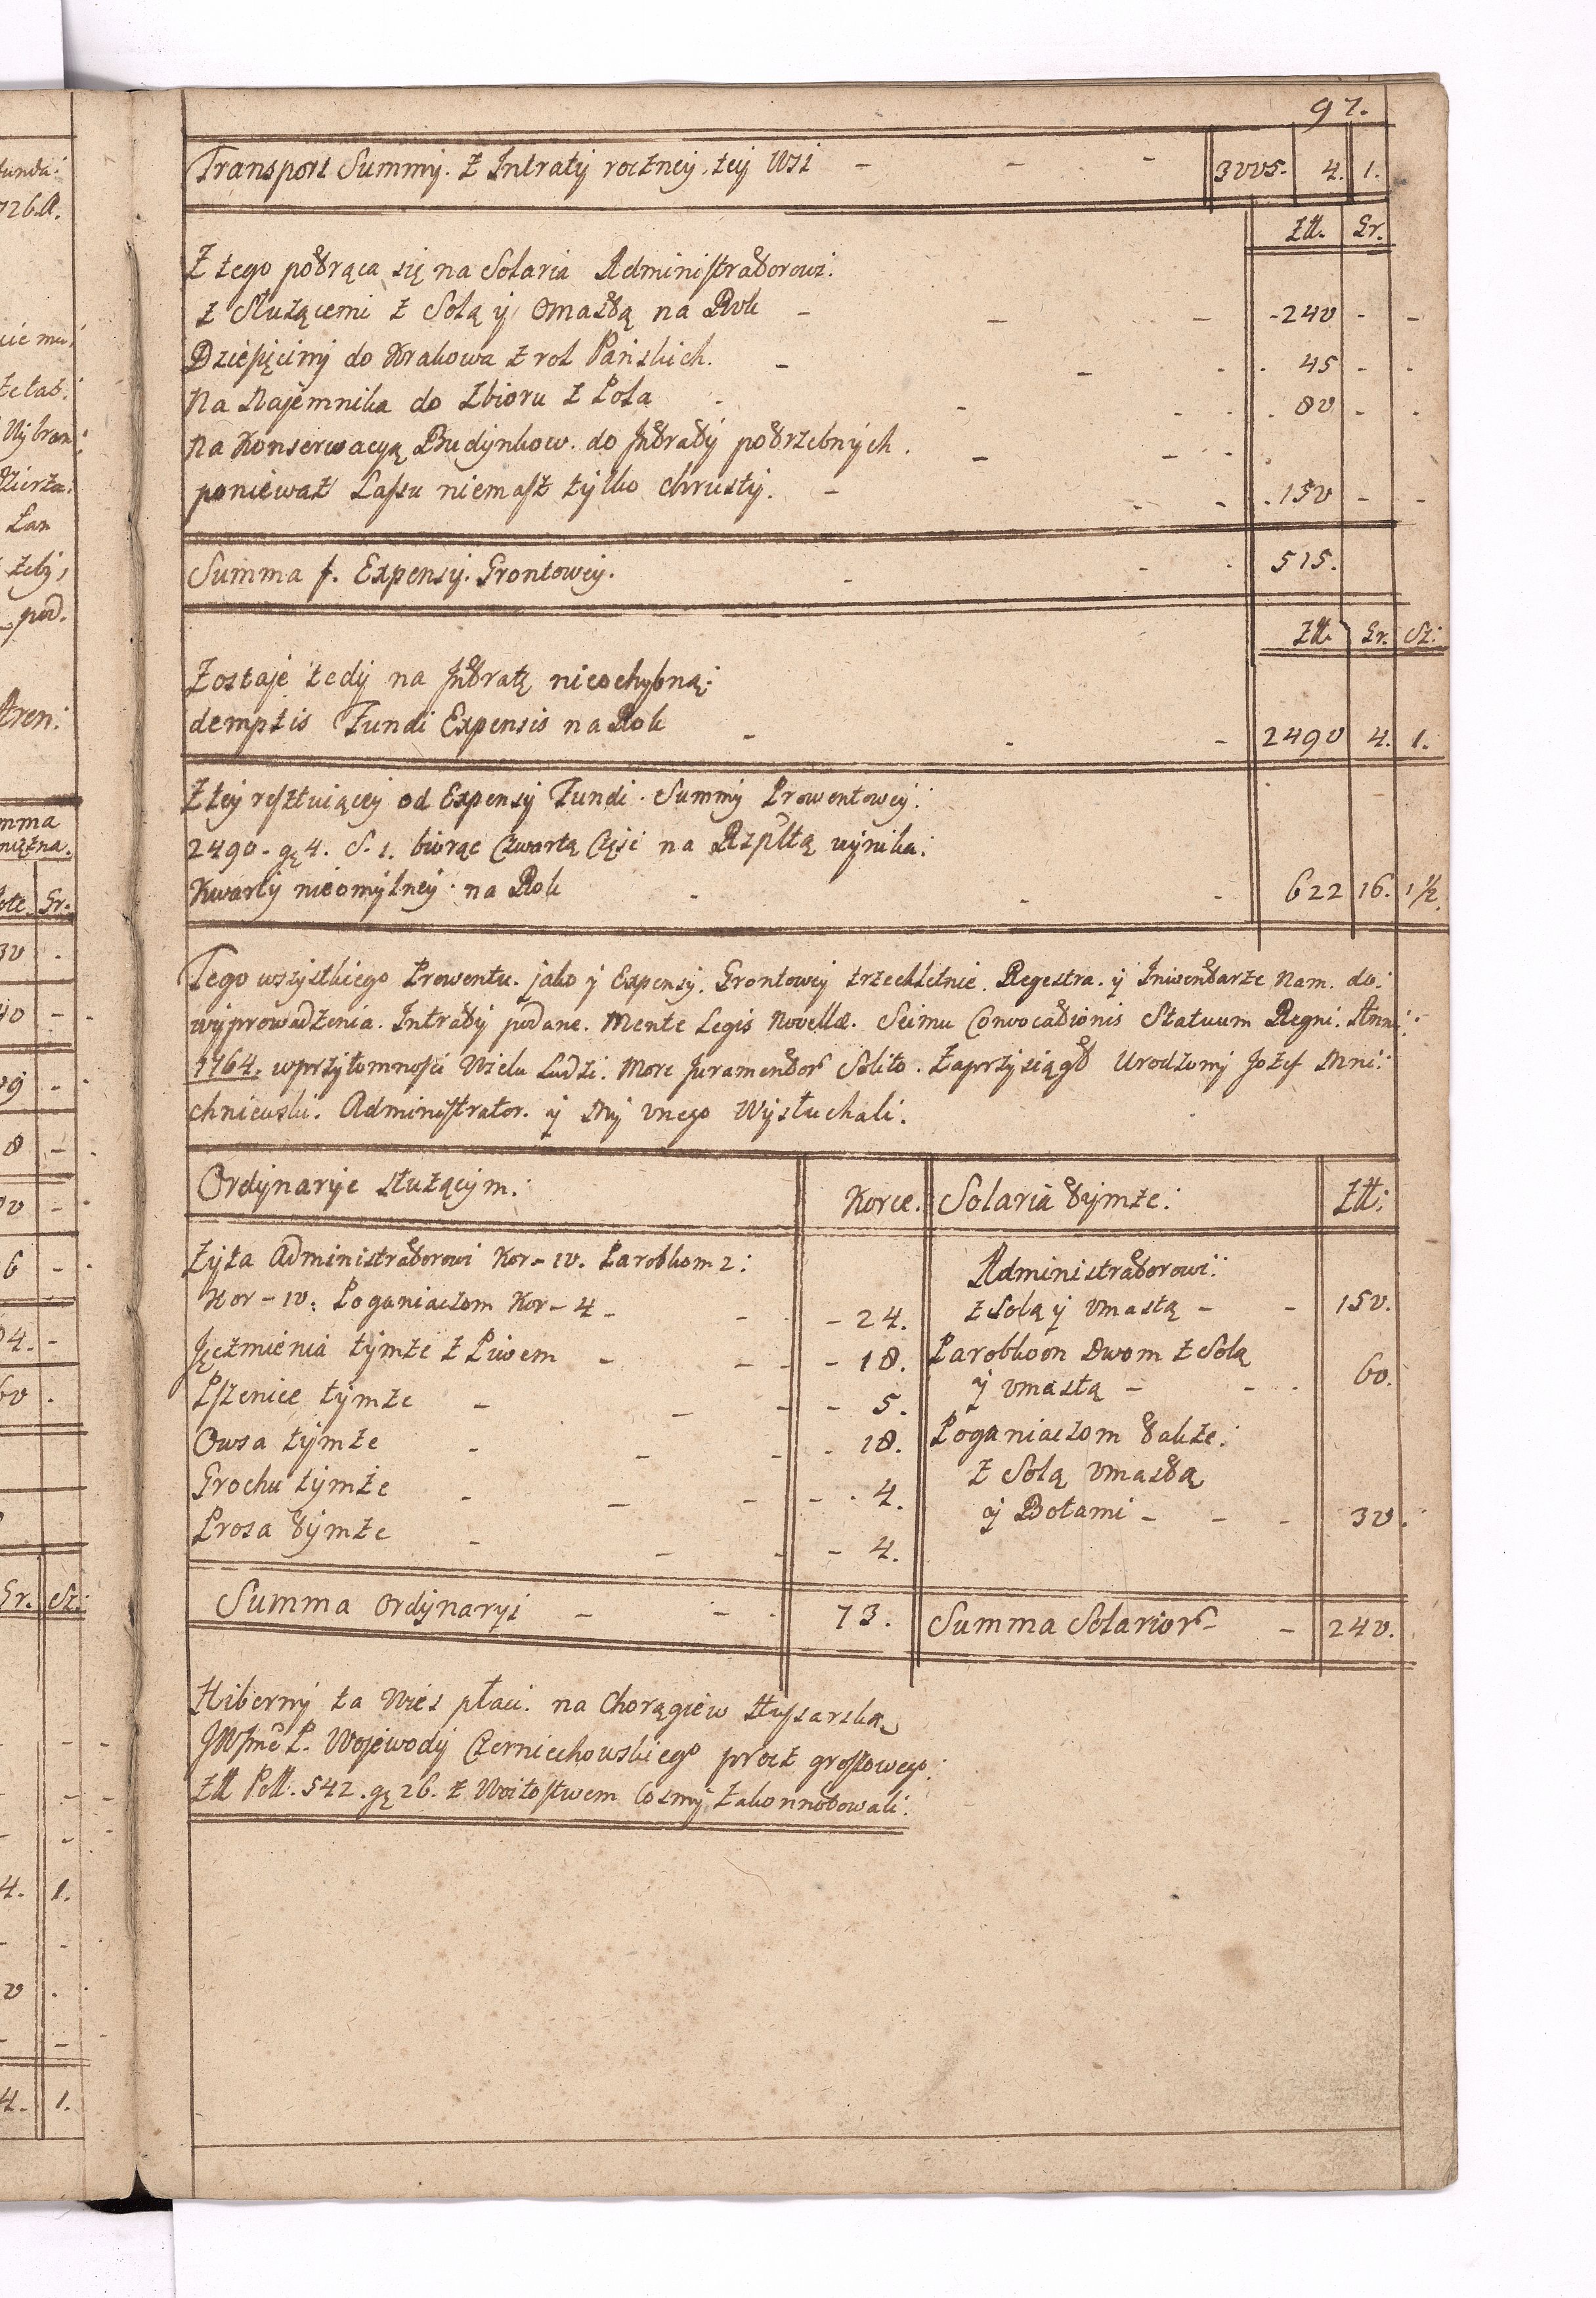 97.
Transport Summy. z Intraty roczney. tey Wsi - - - 3005. 4. 1.
Złł. Gr.
Z tego potrąca się na Solaria Administratorowi:
z Słuzącemi z Solą y Omastą na Rok - - - 240 - -
Dziesięciny do Krakowa z rol Pańskich. - - - 45 - -
Na Najemnika do Zbioru z Pola - - - 80 - -
na Konserwacyą Budynkow. do Intraty potrzebnych. - - -
poniewaz Lassu niemasz tylko chrusty. - - - 150 - -
Summa f. Expensy. Grontowey. - - - 515.
Złł. Gr. Sz:
Zostaje tedy na Intratę nieochybną:
demptis Fundi Expensis na Rok - - - 2490 4. 1.
Z tey resztuiącey od Expensy Fundi. Summy Prowentowey:
2490. gę 4. S. 1. biorąc Czwartą Częsc na Rzpltą wynika:
Kwarty nieomylney. na Rok - - - 622 16. 1 1/2.
Tego wszystkiego Prowentu. jako y Expensy. Grontowey trzechletnie. Regestra. y Inwentarze Nam. do:
wyprowadzenia. Intraty podane. Mente Legis Novellæ. Seimu Convocationis Statuum Regni. Anni:
1764. w przytomnosci Wielu Ludzi. More Juramentor Solito. Zaprzysiągł Urodzony Jozef Mni:
chniewski. Administrator. y My onego Wysłuchali.
Ordynaryje słuzącym: Korce. Solaria tymze: Złł:
Zyta Administratorowi Kor- 10. Parobkom 2:
Kor- 10: Poganiaczom Kor- 4 - - - 24.
Jęczmienia tymze z Piwem - - - 18.
Pszenice tymze - - - 5.
Owsa tymze - - - 18.
Grochu tymze - - - 4.
Prosa tymze - - - 4.
Administratorowi:
z Solą y omastą - - 150.
Parobkom Dwom z Solą
y omastą - - 60.
Poganiaczom takze:
z Solą omastą
y Botami - - - 30.
Summa Ordynaryi - - 73. Summa Solarior - - 240.
Hiberny ta Wies płaci. na Chorągiew Hussarską
JWJmć P. Wojewody Czerniechowskiego procz groszowego:
Złł Poll: 542. gę 26. z Woitostwem cosmy zakonnotowali.